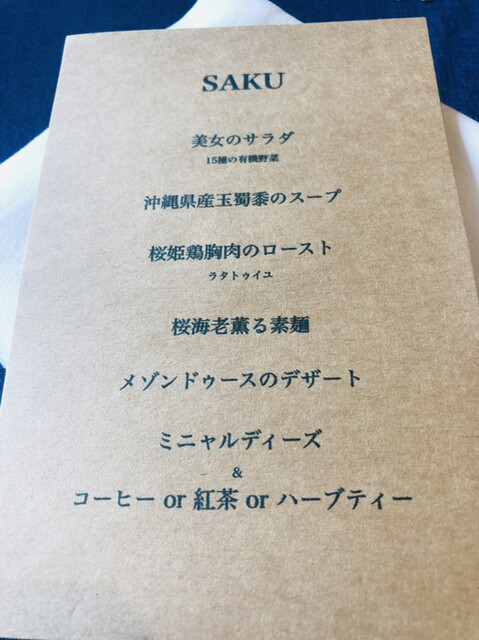 SAKU
美女のサラダ
15種の有機野菜
沖縄県産玉蜀黍のスープ
桜姫鶏胸肉のロースト
ラタトゥイユ
桜海老薫る素麺
メゾンドゥースのデザート
ミニャルディーズ
&
コーヒー or 紅茶 or ハーブティー